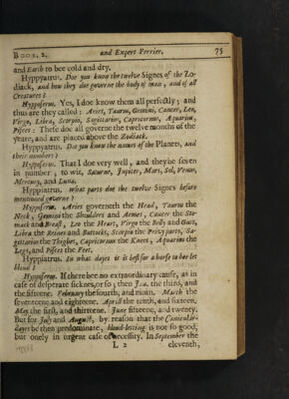 BOOK. 2. and Expert Ferrier. 75
and Earth to bee cold and dry.
Hyppyatrus. Doe you know the twelve Signes of the Zo-
diack, and how they doe governe the body of man, and of all
Creatures?
Hyppoferus. Yes, I doe know them all perfectly; and
thus are they called: Aries, Taurus, Gemini, Cancer, Leo,
Virgo, Libra, Scorpio, Sagittarius, Capricornus, Aquarius,
Pisces: These doe all governe the twelve moneths of the
yeare, and are placed above the Zodiack.
Hyppyatrus. Doe you know the names of the Planets, and
their numbers?
Hyppoferus. That I doe very well, and they be seven
in number; to wit, Saturne, Jupiter, Mars, Sol, Venus,
Mercury, and Luna.
Hyppiatrus. What parts doe the twelve Signes before
mentioned governe?
Hyppoferus. Aries governeth the Head, Taurus the
Neck, Gemini the Shoulders and Armes, Cancer the Sto-
mack and Breast, Leo the Heart, Virgo the Belly and Guts,
Libra the Reines and Buttocks, Scorpio the Privy parts, Sa-
gittarius the Thighes, Capricornus the Knees, Aquarius the
Legs, and Pisces the Feet.
Hyppiatrus. In what dayes is it best for a horse to bee let
blood?
Hyppoferus. If there bee no extraordinary cause, as in
case of desperate sicknes, or so; then Jan. the third, and
the fifteene. February the fourth, and ninth. March the
seventeene and eighteene. April the tenth, and sixteen.
May the first, and thirttene. June fifteene, and twenty.
But for July and August, by reason that the Canicular-
dayes be then predominate, blood-letting is not so good,
but onely in urgent case of necessity. In September the
L 2 eleventh,